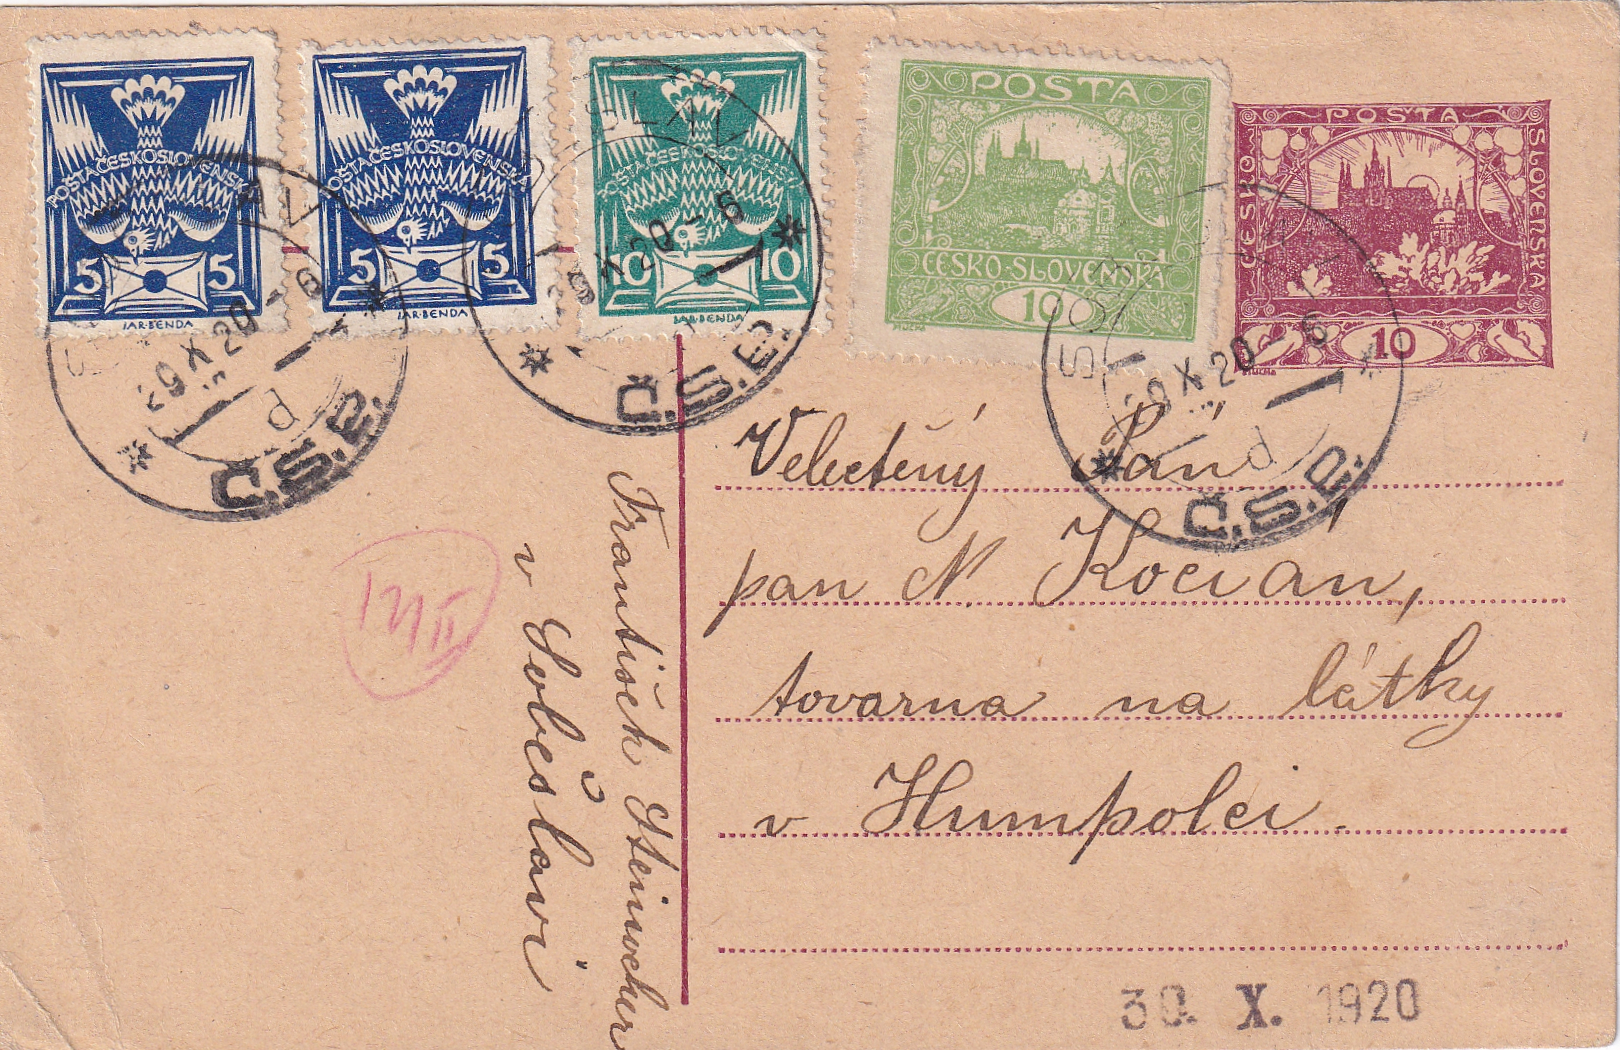 POŠTA ČESKOSLOVENSKÁ
5 5
JAR·BENDA
POŠTA ČESKOSLOVENSKÁ
5 5
JAR·BENDA
POŠTA ČESKOSLOVENSKÁ
10 10
JAR·BENDA
POŠTA
ČESKO·SLOVENSKÁ
10
MUCHA
POŠTA
ČESKO
SLOVENSKÁ
10
MUCHA
29 X 20 - 6
d
Č.S.P.
29 X 20 - 6
Č.S.P.
29 X 20 - 6
d
Č.S.P.
Velectěný Pán
pan N. Kocián,
tovarna na látky
v Humpolci.
František
v Soběslavi
12/II
30. X. 1920